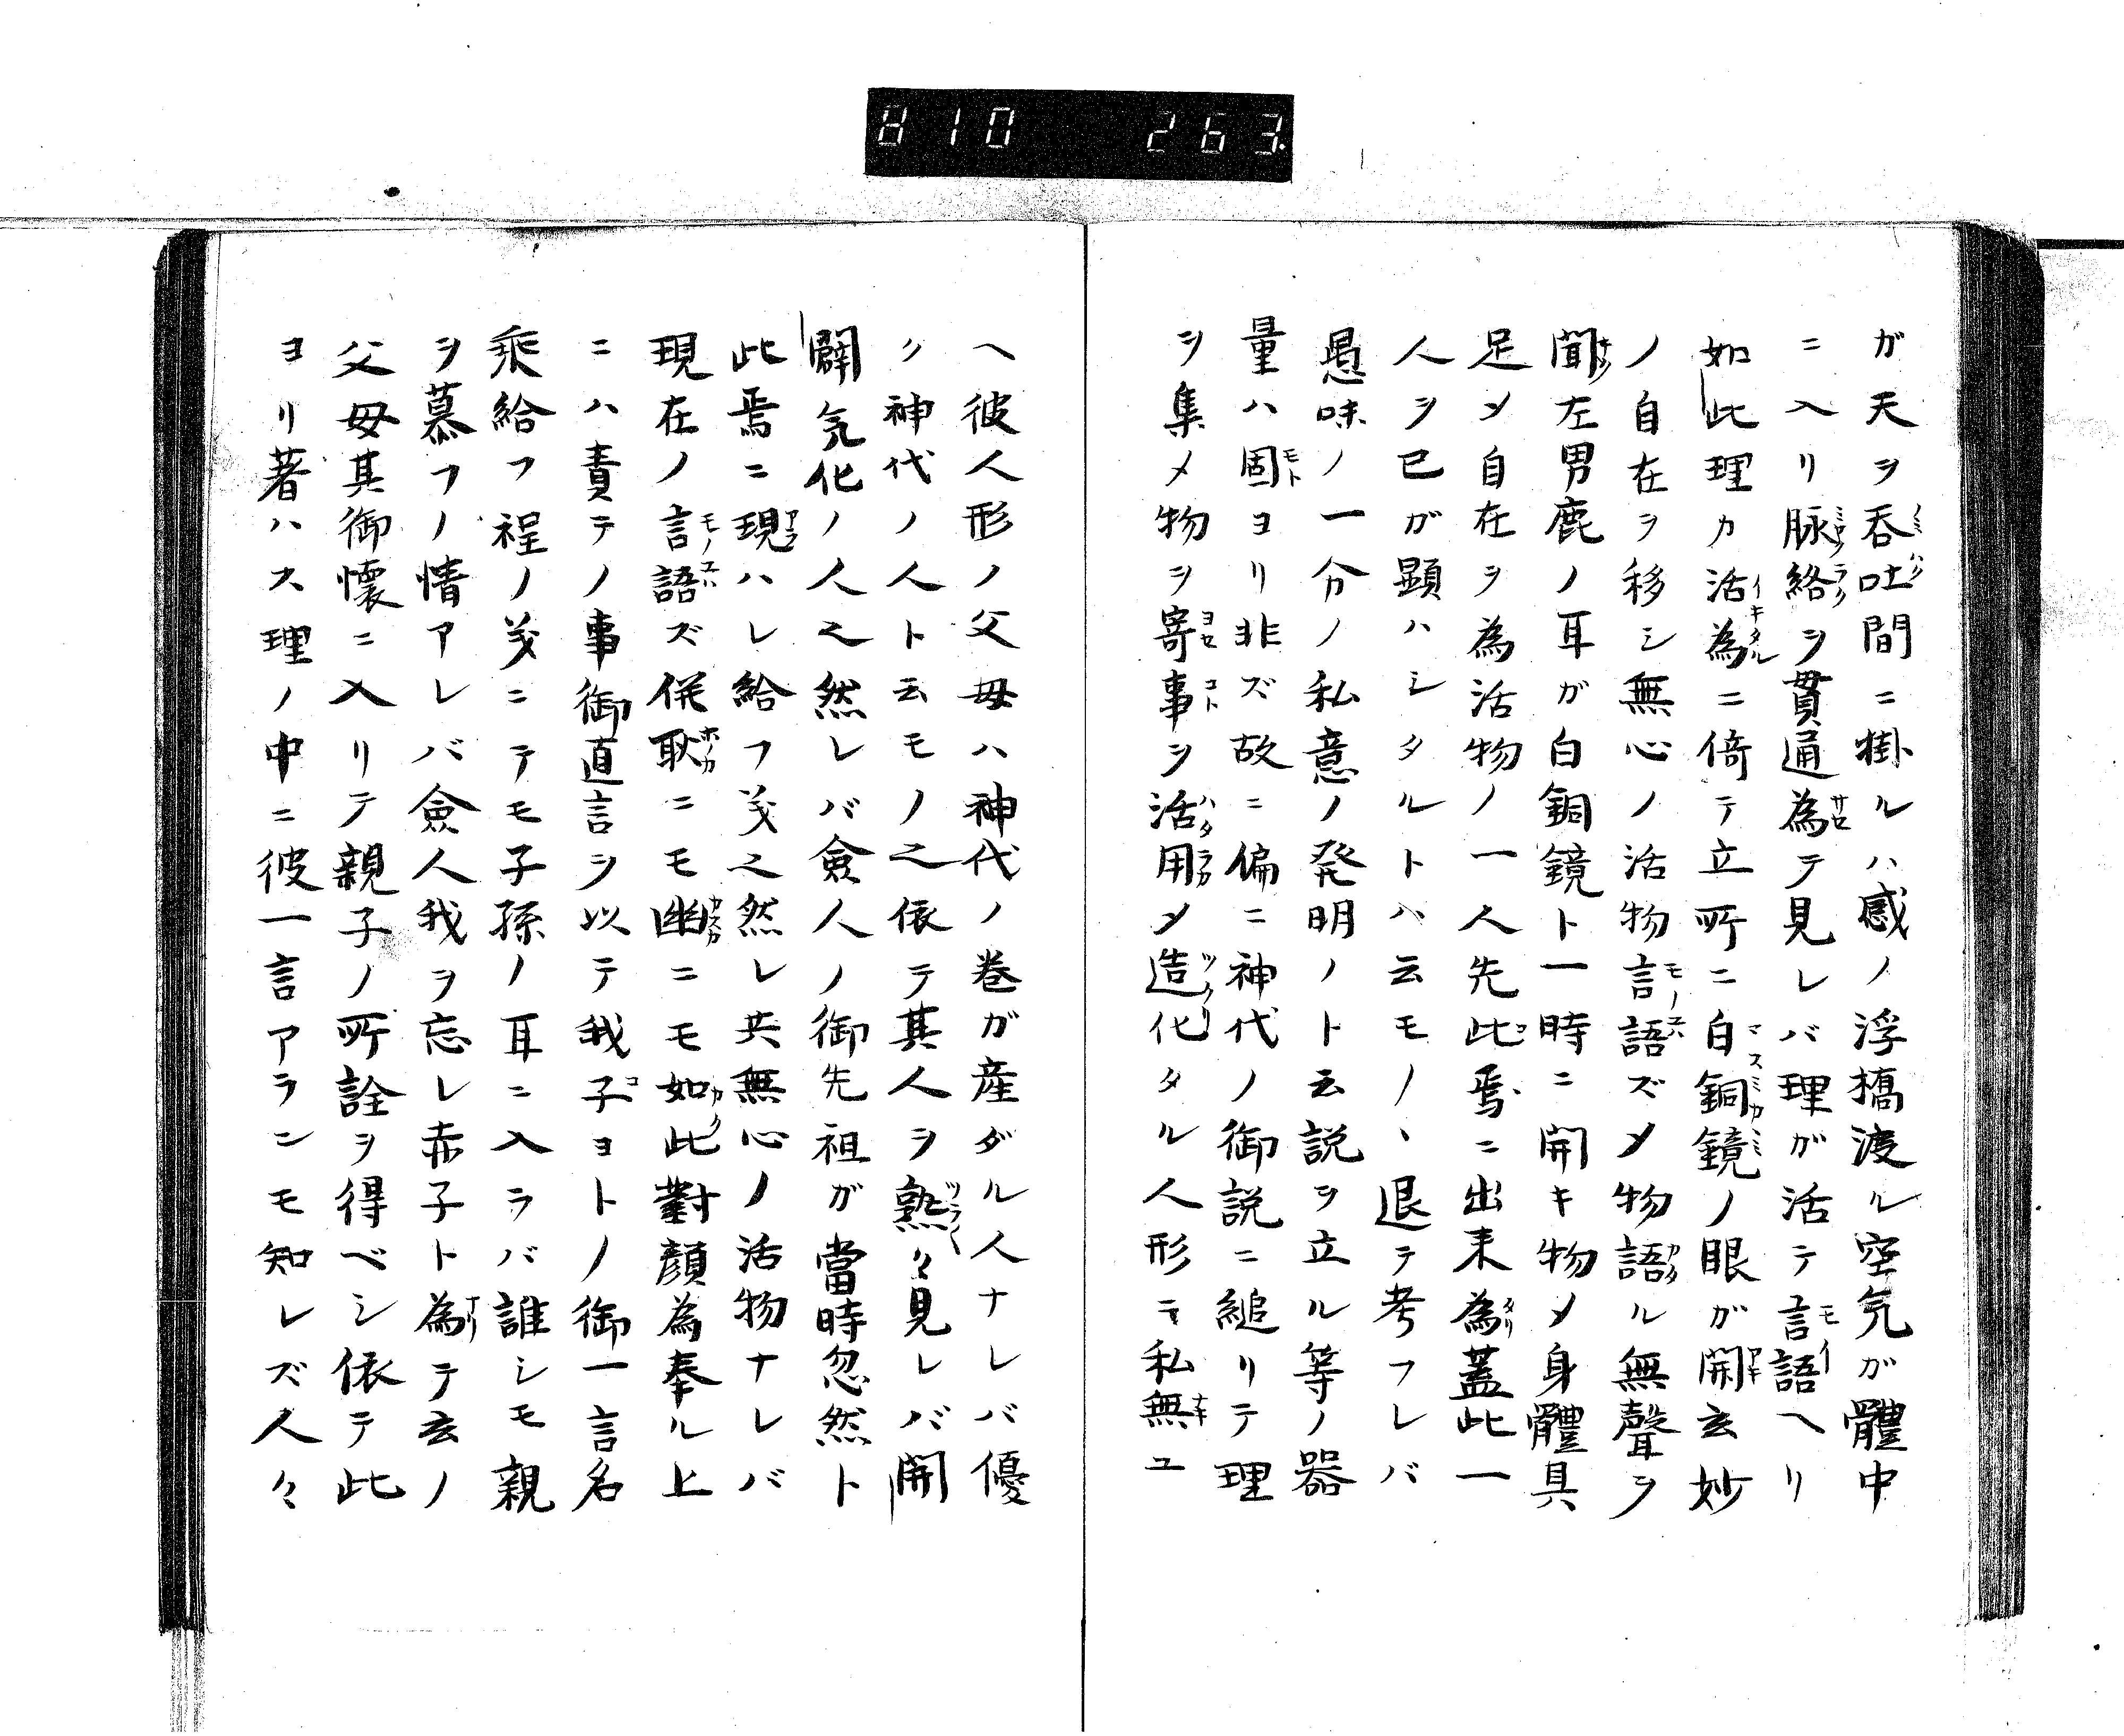 810 263
ガ天ヲ呑吐間ニ掛ルハ感ノ浮橋渡ル空気ガ體中
ニ入リ脉絡ヲ貫通為テ見レバ理ガ活テ言語ヘリ
如此理カ活為ニ倚テ立所ニ白銅鏡ノ眼ガ開玄妙
ノ自在ヲ移シ無心ノ活物言語ズメ物語ル無聲ヲ
聞左男鹿ノ耳ガ白銅鏡ト一時ニ開キ物メ身體具
足メ自在ヲ為活物ノ一人先此焉ニ出来為蓋此一
人ヲ已ガ顕ハシタルトハ云モノヽ退テ考フレバ
愚味ノ一分ノ私意ノ発明ノト云説ヲ立ル等ノ器
量ハ固ヨリ非ズ故ニ偏ニ神代ノ御説ニ縋リテ理
ヲ集メ物ヲ寄事ヲ活用メ造化タル人形ニテ私無ユ
ヘ彼人形ノ父母ハ神代ノ巻ガ産ダル人ナレバ優
ク神代ノ人ト云モノ之依テ其人ヲ熟々見レバ開
闢気化ノ人之然レバ僉人ノ御先祖ガ當時忽然ト
此焉ニ現ハレ給フ義之然レ共無心ノ活物ナレバ
現在ノ言語ズ併耿ニモ幽ニモ如此對顔為奉ル上
ニハ責テノ事御直言ヲ以テ我子ヨトノ御一言名
乗給フ程ノ義ニテモ子孫ノ耳ニ入ラバ誰シモ親
ヲ慕フノ情アレバ僉人我ヲ忘レ赤子ト為テ玄ノ
父母其御懐ニ入リテ親子ノ所詮ヲ得ベシ依テ此
ヨリ著ハス理ノ中ニ彼一言アランモ知レズ人々